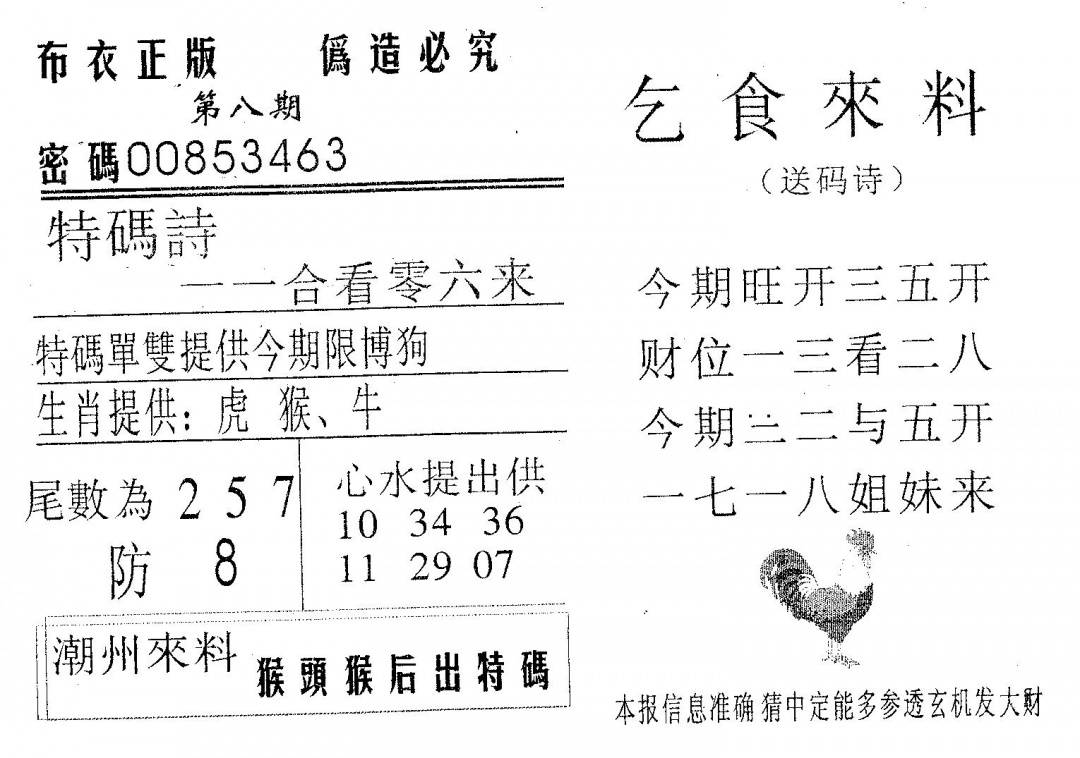 布衣正版 僞造必究
第八期
密碼00853463
特碼詩
一一合看零六来
特碼單雙提供今期限博狗
生肖提供：虎 猴、牛
尾數為 2 5 7
防 8
心水提出供
10 34 36
11 29 07
潮州來料 猴頭猴后出特碼
乞食來料
（送码诗）
今期旺开三五开
财位一三看二八
今期三二与五开
一七一八姐妹来
本报信息准确猜中定能多参透玄机发大财